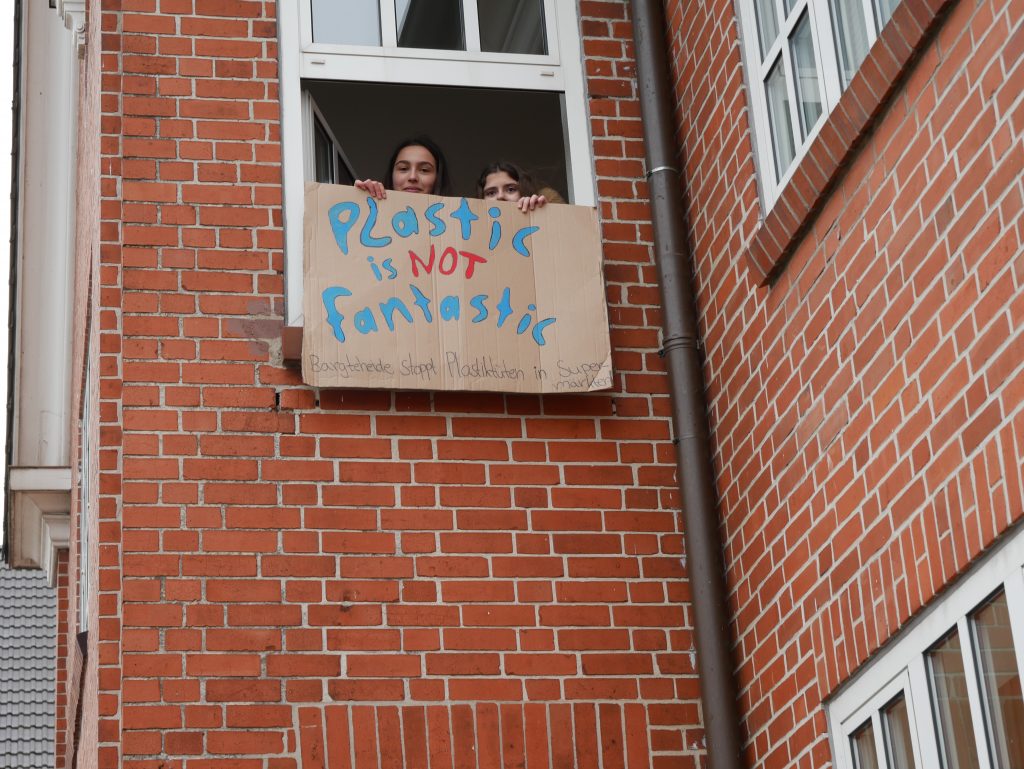 Plastic
is NOT
fantastic
Bargteheide stoppt Plastiktüten in Super-
märkten!